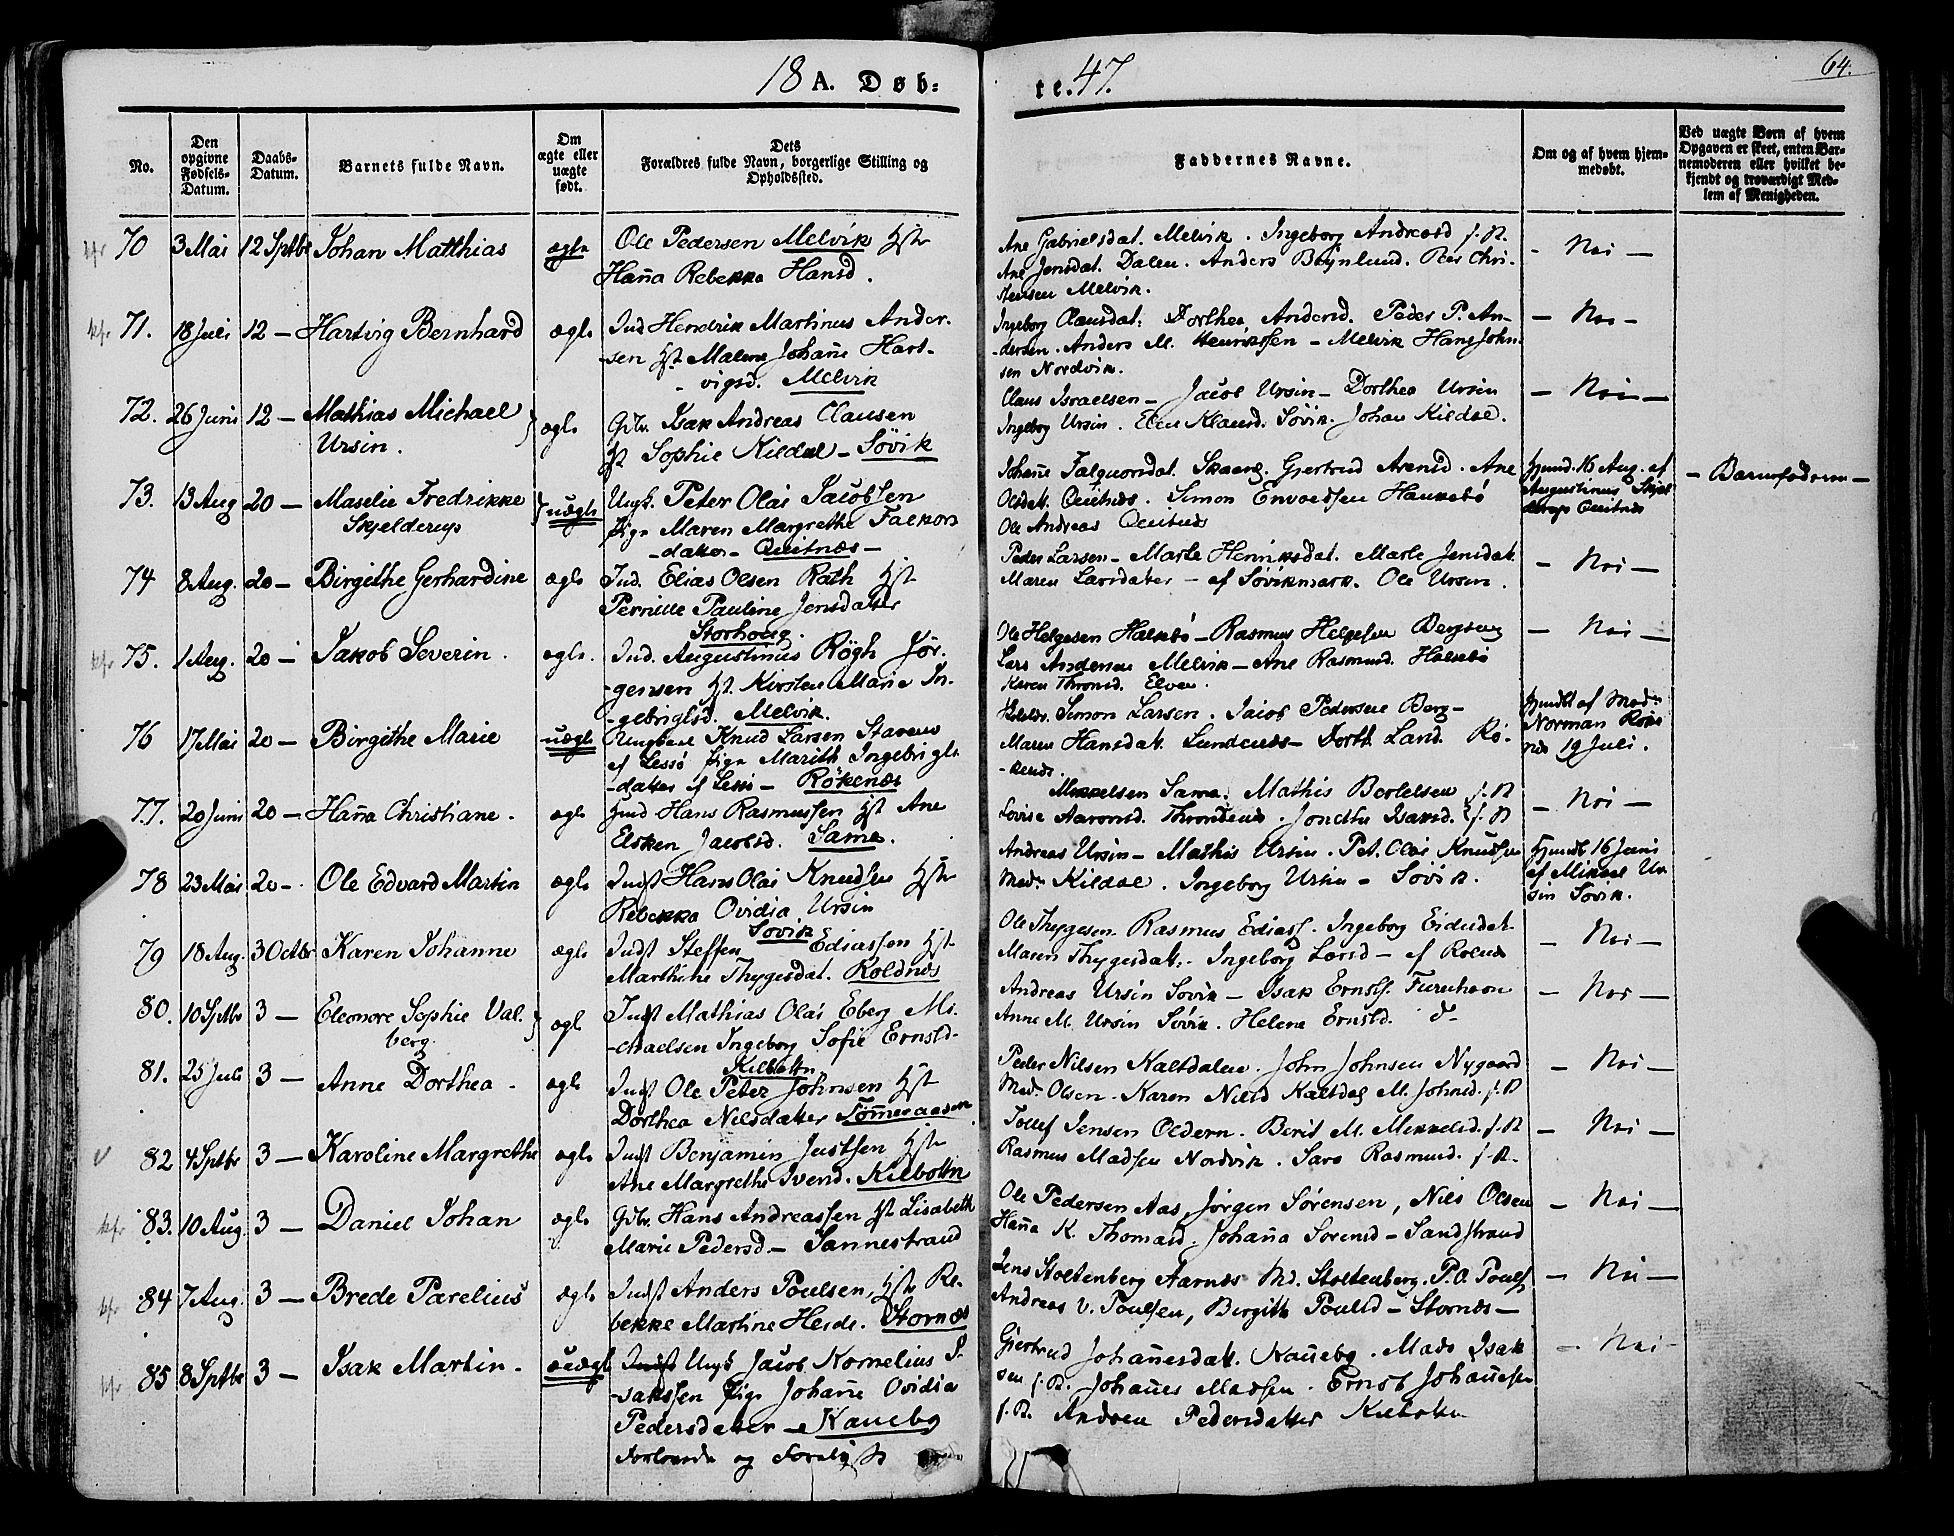 18 A. Døb:
te. 47.
64.
No.
Den opgivne Fødsels-Datum.
Daabs-Datum.
Barnets fulde Navn.
Om ægte eller uægte født.
Dets
Forældres fulde Navn, borgerlige Stilling og
Opholdssted.
Faddernes Navne.
Om og af hvem hjem-
medøbt.
Ved uægte Børn af hvem
Opgaven er skeet, enten Bar-
nemoderen eller hvilket be-
kjendt og troværdigt Med-
lem af Menigheden.
70 3 Mai 12 Sptbr Johan Matthias ægte
Ole Pedersen Melvik Hst
Hanna Rebekka Hansd.
Ane Gabrielsdat. Melvik. Ingeborg Andreasd f. St.
Ane Jensdat. Dalen. Anders Brynlund. Per Chri-
stensen Melvik.
- Nei -
71. 18 Juli 12 - Hartvig Bernhard ægte
Ind Hendrik Martinus Ander-
-sen Hst Malene Johanne Hart-
- vigsd. Melvik
Ingeborg Clausdat. Dorthea Andersd. Peder P. An-
-dersen. Anders M. Henrikssen - Melvik Hans John-
sen Nordvik.
- Nei -
72. 26 Juni 12 - Mathias Michael
Ursin. ægte
Gbr. Isak Andreas Clausen
Hst Sophie Kildal - Søvik
Claus Israelsen - Jacob Ursin - Dorthea Ursin
Ingeborg Ursin. Elen Klausd. Søvik. Johan Kildal.
- Nei -
73. 13 Aug 20 - Maselie Fredrikke
Skjelderup uægte
Ungk. Peter Olai Jacobsen
Pige Maren Margrethe Falkors
- datter - Qvitnæs -
Johanne Falquorsdat. Skaang. Gjertrud Arensd. Ane
Olsdat. Qvitnæs. Simon Envoldsen Haukebø
Ole Andreas Qvitnæs
Hjemd. 16 Aug. af
Augustinus Skjel
derup Qvitnæs
- Barnefaderen -
74 8 Aug. 20 - Birgithe Gerhardine ægte
Ind. Elias Olsen Rath Hst
Pernille Pauline Jensdatter
Storhoug.
Peder Larsen - Marte Henriksdat. Marte Jensdat
Maren Larsdatter - af Søvikmark. Ole Ursin.
- Nei -
75. 1 Aug. 20 - Jakob Severin. ægte.
Ind. Augustinus Røgh Jør-
-gensen Hst. Kirsten Marie In-
-gebrigtsd. Melvik.
Ole Helgesen Halsebø - Rasmus Helgesen Bergseng
Lars Andersen Melvik - Ane Rasmusd. Halsebø
Karen Thronsd. Elven.
- Nei -
76 17 Mai 20 - Birgithe Marie uægte
Ungkarl Knud Larsen Stavens
af Lessø Pige Marith Ingebrigts
-datter af Lessø - Røkenæs
Simon Larsen. Jacob Pedersen Berg -
Maren Hansdat. Lundenæs - Dorth Land. Rø-
-kenæs.
Hjemdt af Mad.
Norman Røke
næs 19 Juli.
77. 20 Juni 20 - Hanna Christiane. ægte
Hmd Hans Rasmussen Hst Ane
Elsken Jacobsd. Sama.
Mikkelsen Sama. Mathis Bertelsen f. St
Lovise Aaronsd. Throndenæs. Jonetta Isaksd. f. St
- Nei -
78 23 Mai 20 - Ole Edvard Martin ægte
Indst Hans Olai Knudsen Hst
Rebekka Ovidia Ursin
Søvik
Andreas Ursin - Mathis Ursin. Pet. Olai Knudsen
Mad. Kildal. Ingeborg Ursin - Søvik.
Hjemdt 16 Juni
af Mikael Ur
sin Søvik.
79 18 Aug. 3 Octbr Karen Johanne ægte
Indst Steffen Ediassen Hst
Marthine Thygesdat. Roldnæs
Ole Thygesen Rasmus Ediass. Ingeborg Eidisdat
Maren Thygesdat. Ingeborg Larsd - af Rolnæs
- Nei -
80. 10 Sptbr 3 - Eleonore Sophie Val-
berg. ægt
Indst Mathias Olai Eberg Mi-
-chaelsen Ingeborg Sofie Ernstd-
Kilbotn
Andreas Ursin Søvik - Isak Ernsts. Furuhaon
Anne M. Ursin Søvik. Helena Ernstd. d-
- Nei -
81. 25 Juli 3 - Anne Dorthea - ægte
Indst Ole Peter Johnsen Hst
Dorthea Nilsdatter Tømmeraasen
Peder Nilsen Kaltdalen. John Johnsen Nygaard
Mad. Olsen. Karen Nilsd Kaltdal M. Johnsd. f. St
- Nei -
82 4 Sptbr 3 - Karoline Margrethe ægte
Indst Benjamin Justsen Hst
Ane Margrethe Ivend. Kilbotn
Tollef Jensen Oldern. Berit M. Mikkelsd. f. St
Rasmus Madsen Nordvik. Sara Rasmusd. f. St.
- Nei -
83. 10 Aug. 3 - Daniel Johan ægte
Gbr. Hans Andreassen Hst Lisabeth
Marie Pedersd - Sannestrand
Ole Pedersen Aas, Jørgen Sørensen, Nils Olsen
Hanna K. Thomasd. Johanna Sorensd - Sandstrand
- Nei -
84 7 Aug. 3 - Brede Parelius ægte
Indst Anders Poulsen, Hst Re-
bekke Martine Heide. Stornæs
Jens Stoltenberg Aarnæs Md. Stoltenberg. P. O. Pouls
Andreas V. Poulsen, Birgith Poulsd - Stornæs -
- Nei -
85 8 Sptbr 3 - Isak Martin - uægte
Indst Ungk Jacob Kornelius I-
-saksen Pige Johanne Ovidia
Pedersdatter - Kaneby
Forlovede og
Gjertrud Johannesdat. Kaneby. Mads Isak
sen f. St. Johannes Madsen. Ernst Johannesen
f. St. Andrea Pedersdatter Kilbotn
- Nei -